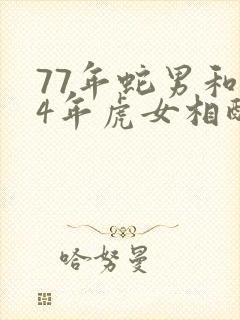 77年蛇男和
4年虎女相
哈努曼